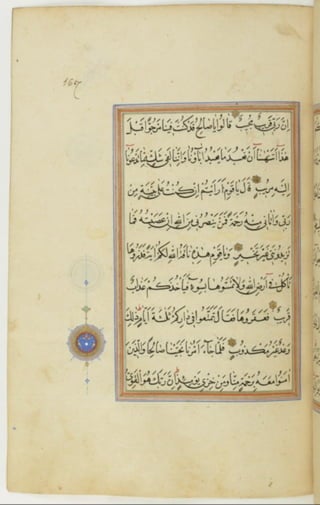 إِنَّ رَبِّي قَرِيبٌ مُجِيبٌ قَالُوا يَا صَالِحُ قَدْ كُنْتَ فِينَا مَرْجُوًّا قَبْلَ
هَذَا أَتَنْهَانَا أَنْ نَعْبُدَ مَا يَعْبُدُ آبَاؤُنَا وَإِنَّنَا لَفِي شَكٍّ مِمَّا تَدْعُونَا
إِلَيْهِ مُرِيبٍ قَالَ يَا قَوْمِ أَرَأَيْتُمْ إِنْ كُنْتُ عَلَى بَيِّنَةٍ مِنْ
رَبِّي وَآتَانِي مِنْهُ رَحْمَةً فَمَنْ يَنْصُرُنِي مِنَ اللَّهِ إِنْ عَصَيْتُهُ فَمَا
تَزِيدُونَنِي غَيْرَ تَخْسِيرٍ وَيَا قَوْمِ هَذِهِ نَاقَةُ اللَّهِ لَكُمْ آيَةً فَذَرُوهَا
تَأْكُلْ فِي أَرْضِ اللَّهِ وَلَا تَمَسُّوهَا بِسُوءٍ فَيَأْخُذَكُمْ عَذَابٌ
قَرِيبٌ فَعَقَرُوهَا فَقَالَ تَمَتَّعُوا فِي دَارِكُمْ ثَلَثَةَ أَيَّامٍ ذَلِكَ
وَعْدٌ غَيْرُ مَكْذُوبٍ فَلَمَّا جَاءَ أَمْرُنَا نَجَّيْنَا صَالِحًا وَالَّذِينَ
آمَنُوا مَعَهُ بِرَحْمَةٍ مِنَّا وَمِنْ خِزْيِ يَوْمِئِذٍ إِنَّ رَبَّكَ هُوَ الْقَوِيُّ